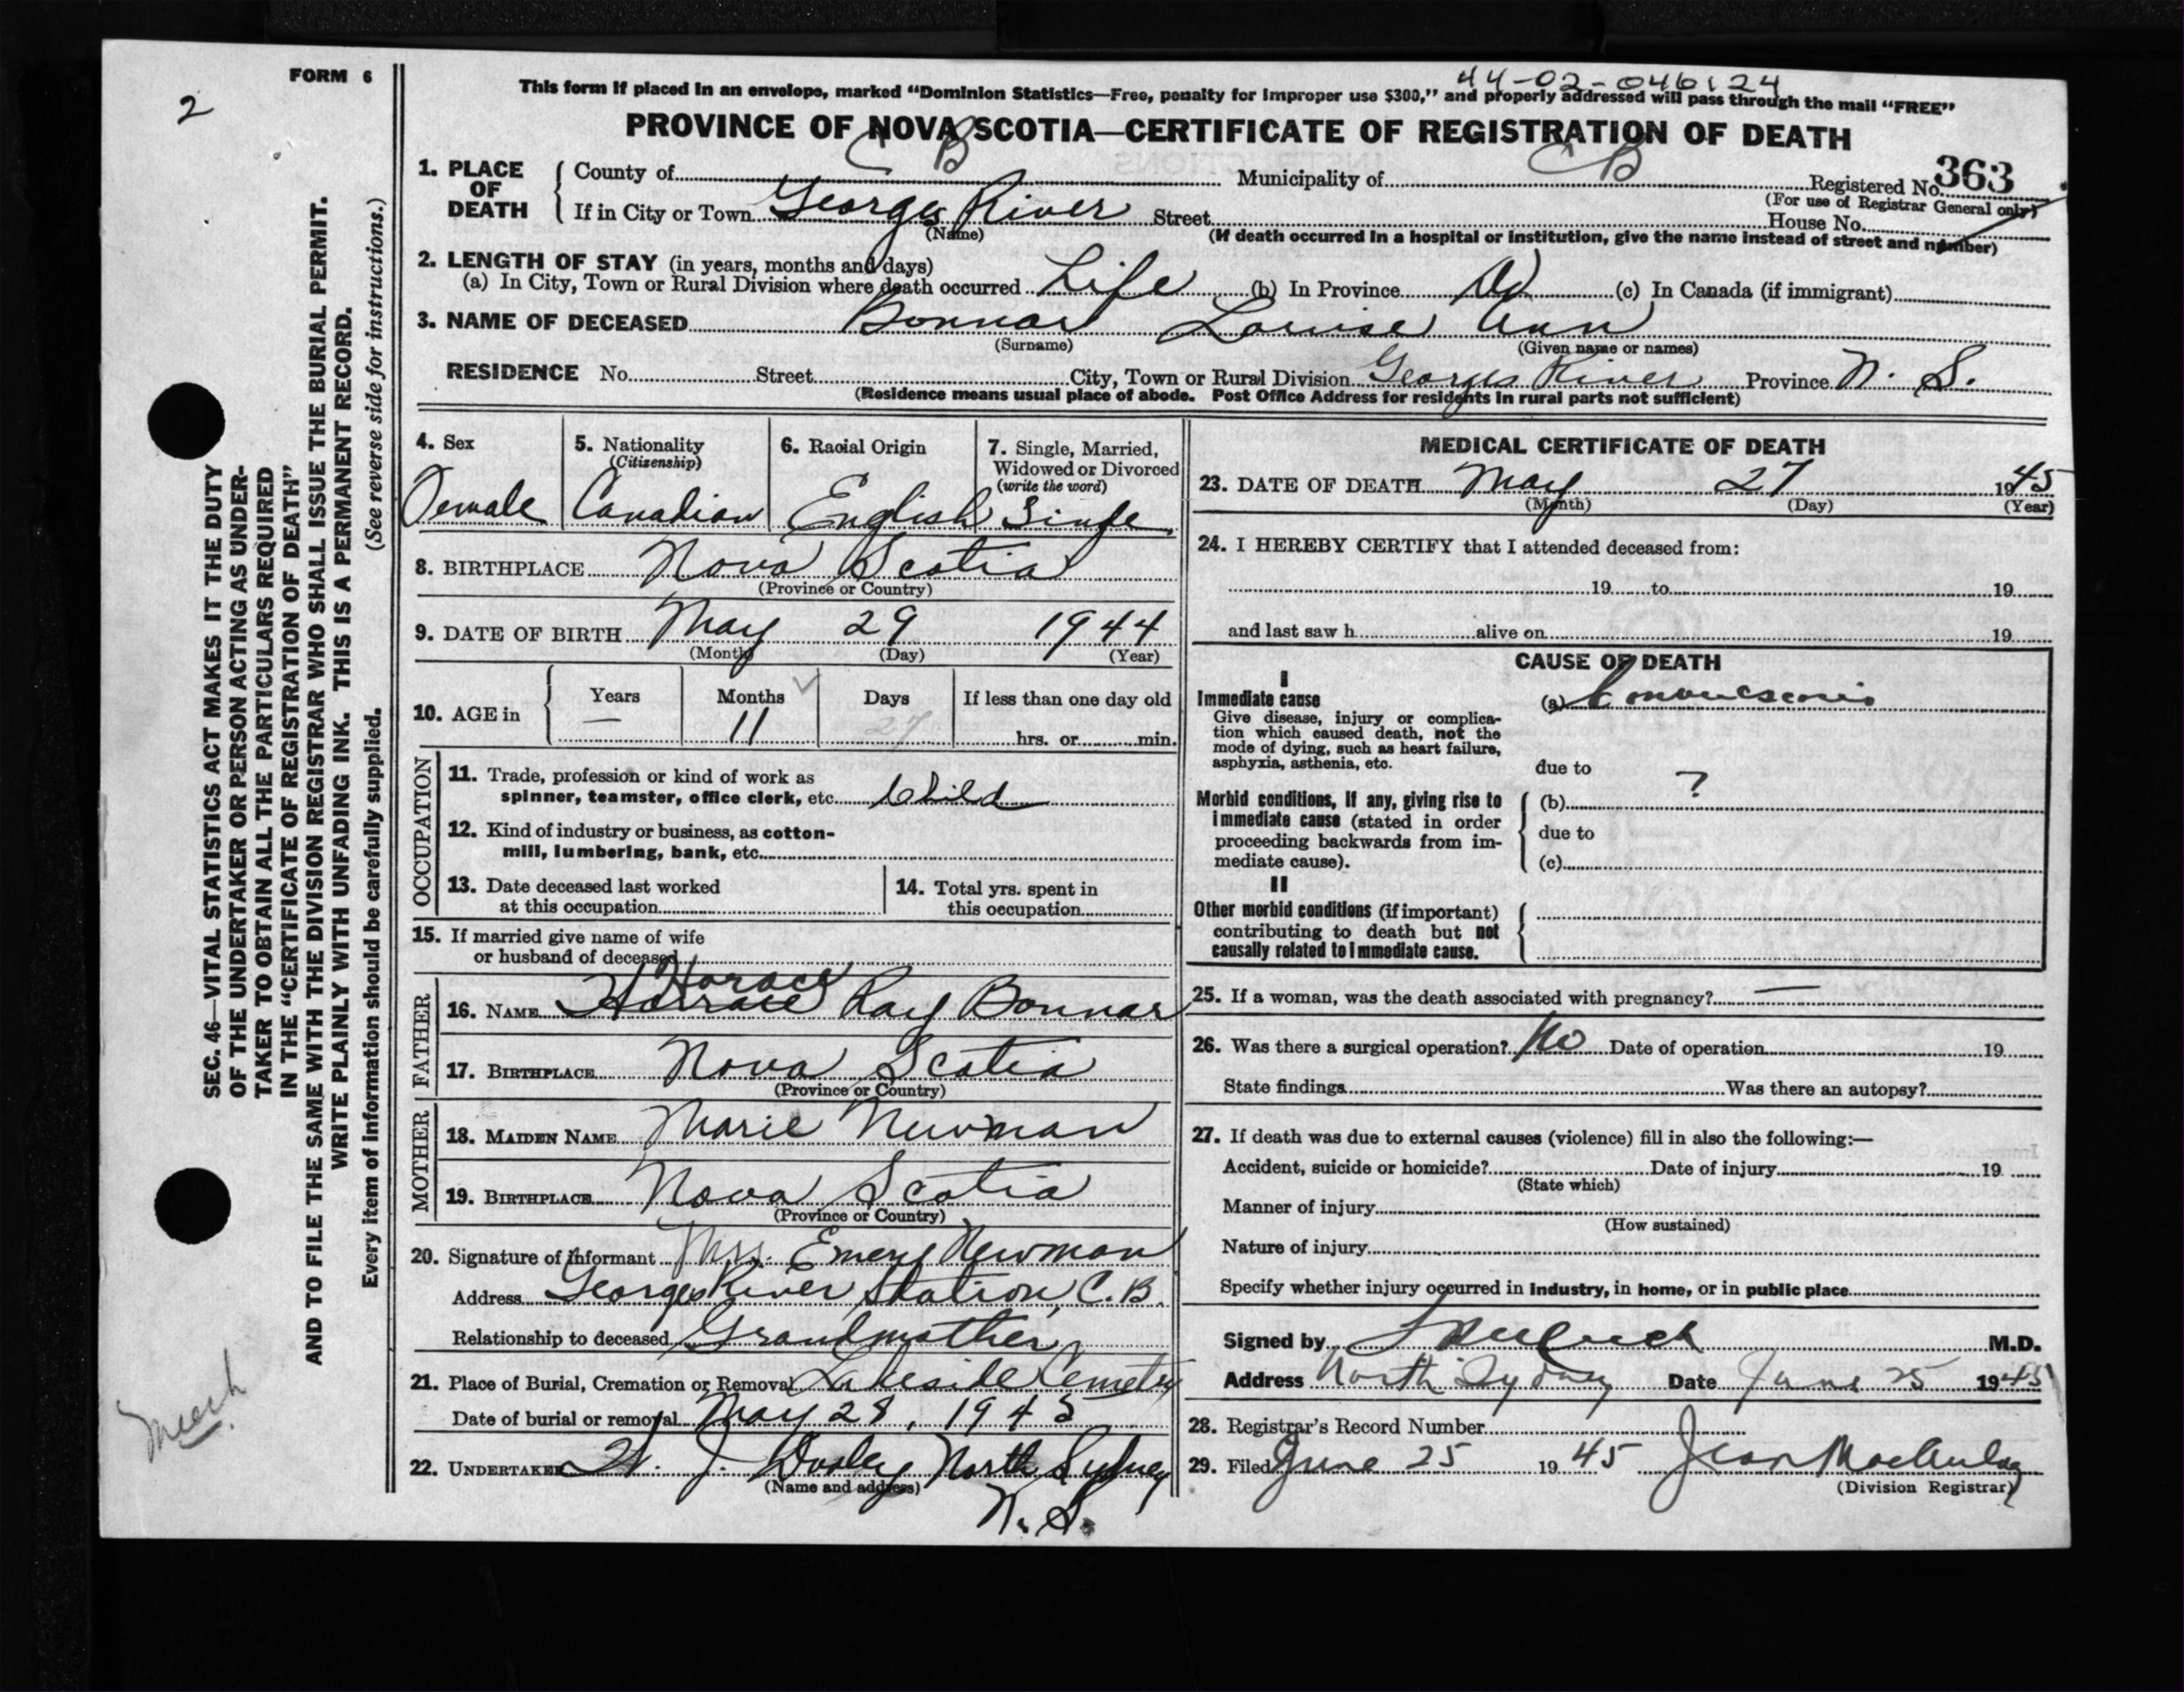 FORM 6
2
44-02-046124
This form if placed in an envelope, marked “Dominion Statistics—Free, penalty for improper use $300,” and properly addressed will pass through the mail “FREE”
PROVINCE OF NOVA SCOTIA—CERTIFICATE OF REGISTRATION OF DEATH
1. PLACE OF DEATH
County of C B Municipality of C B Registered No. 363
(For use of Registrar General only)
If in City or Town Georges River Street House No.
(Name) (If death occurred in a hospital or institution, give the name instead of street and number)
2. LENGTH OF STAY (in years, months and days)
(a) In City, Town or Rural Division where death occurred Life (b) In Province Do (c) In Canada (if immigrant)
3. NAME OF DECEASED Bonnar Louise Ann
(Surname) (Given name or names)
RESIDENCE No. Street City, Town or Rural Division Georges River Province N. S.
(Residence means usual place of abode. Post Office Address for residents in rural parts not sufficient)
SEC. 46—VITAL STATISTICS ACT MAKES IT THE DUTY
OF THE UNDERTAKER OR PERSON ACTING AS UNDER-
TAKER TO OBTAIN ALL THE PARTICULARS REQUIRED
IN THE “CERTIFICATE OF REGISTRATION OF DEATH”
AND TO FILE THE SAME WITH THE DIVISION REGISTRAR WHO SHALL ISSUE THE BURIAL PERMIT.
WRITE PLAINLY WITH UNFADING INK. THIS IS A PERMANENT RECORD.
Every item of information should be carefully supplied. (See reverse side for instructions.)
4. Sex
Female
5. Nationality
(Citizenship)
Canadian
6. Racial Origin
English
7. Single, Married,
Widowed or Divorced
(write the word)
8. BIRTHPLACE Nova Scotia
(Province or Country)
9. DATE OF BIRTH May 29 1944
(Month) (Day) (Year)
10. AGE in
Years Months Days If less than one day old
— 11 27 hrs. or min.
OCCUPATION
11. Trade, profession or kind of work as
spinner, teamster, office clerk, etc. Child
12. Kind of industry or business, as cotton-
mill, lumbering, bank, etc.
13. Date deceased last worked
at this occupation
14. Total yrs. spent in
this occupation
15. If married give name of wife
or husband of deceased
FATHER
Horace
16. NAME Ray Bonnar
17. BIRTHPLACE Nova Scotia
(Province or Country)
MOTHER
18. MAIDEN NAME Marie Newman
19. BIRTHPLACE Nova Scotia
(Province or Country)
20. Signature of informant Mrs. Emery Newman
Address Georges River Station, C. B.
Relationship to deceased Grandmother
21. Place of Burial, Cremation or Removal Lakeside Cemetry
Date of burial or removal May 28, 1945
22. UNDERTAKER J. Dooley North Sydney
(Name and address)
N. S.
MEDICAL CERTIFICATE OF DEATH
23. DATE OF DEATH May 27 1945
(Month) (Day) (Year)
24. I HEREBY CERTIFY that I attended deceased from:
19 to 19
and last saw h alive on 19
CAUSE OF DEATH
I
Immediate cause
Give disease, injury or complica-
tion which caused death, not the
mode of dying, such as heart failure,
asphyxia, asthenia, etc.
(a)
due to
Morbid conditions, if any, giving rise to
immediate cause (stated in order
proceeding backwards from im-
mediate cause).
(b) ?
due to
(c)
II
Other morbid conditions (if important)
contributing to death but not
causally related to immediate cause.
25. If a woman, was the death associated with pregnancy? —
26. Was there a surgical operation? No Date of operation 19
State findings Was there an autopsy?
27. If death was due to external causes (violence) fill in also the following:—
Accident, suicide or homicide? Date of injury 19
(State which)
Manner of injury
(How sustained)
Nature of injury
Specify whether injury occurred in industry, in home, or in public place
Signed by M.D.
Address North Sydney Date June 25 1945
28. Registrar's Record Number
29. Filed June 25 1945 Jean
(Division Registrar)
Meech